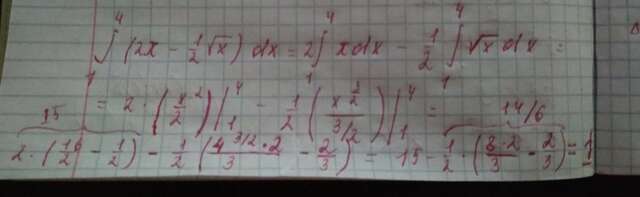 ∫₁⁴ (2x - 1/2 √x) dx = 2 ∫₁⁴ x dx - 1/2 ∫₁⁴ √x dx =
= 2 · (x²/2) |₁⁴ - 1/2 (x^(3/2) / (3/2)) |₁⁴ =
15 14/6
2 · (16/2 - 1/2) - 1/2 (4^(3/2) · 2 / 3 - 2/3) = 15 - 1/2 · (8 · 2 / 3 - 2/3) =